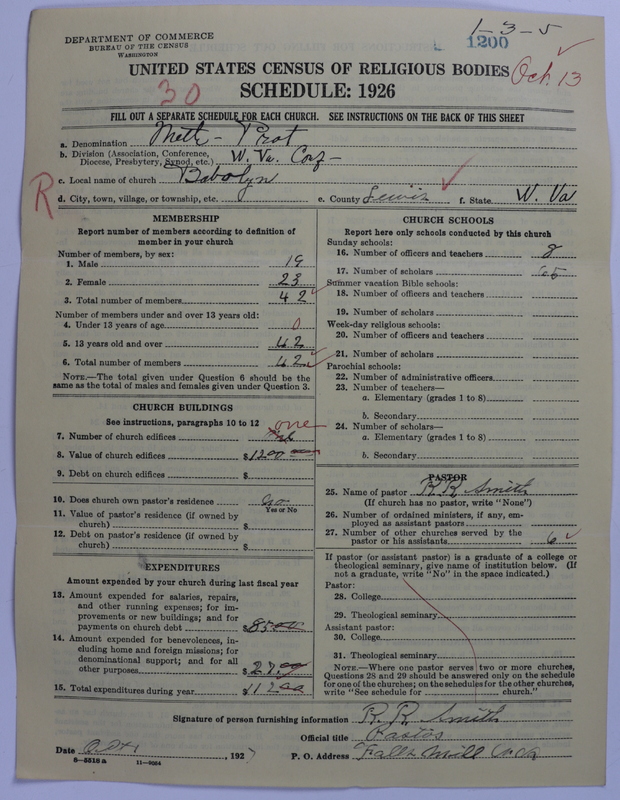 DEPARTMENT OF COMMERCE
BUREAU OF THE CENSUS
WASHINGTON
1-3-5
1200
UNITED STATES CENSUS OF RELIGIOUS BODIES
Oct. 13
SCHEDULE: 1926
30
FILL OUT A SEPARATE SCHEDULE FOR EACH CHURCH. SEE INSTRUCTIONS ON THE BACK OF THIS SHEET
a. Denomination Meth - Prot
b. Division (Association, Conference, Diocese, Presbytery, Synod, etc.) W. Va. Conf -
c. Local name of church
R
d. City, town, village, or township, etc. e. County Lewis f. State W. Va
MEMBERSHIP
Report number of members according to definition of
member in your church
Number of members, by sex:
1. Male 19
2. Female 23
3. Total number of members 42
Number of members under and over 13 years old:
4. Under 13 years of age 0
5. 13 years old and over 42
6. Total number of members 42
NOTE.—The total given under Question 6 should be the
same as the total of males and females given under Question 3.
CHURCH BUILDINGS
See instructions, paragraphs 10 to 12
7. Number of church edifices one
8. Value of church edifices $1200
9. Debt on church edifices $
10. Does church own pastor's residence
Yes or No
11. Value of pastor's residence (if owned by
church) $
12. Debt on pastor's residence (if owned by
church) $
EXPENDITURES
Amount expended by your church during last fiscal year
13. Amount expended for salaries, repairs,
and other running expenses; for im-
provements or new buildings; and for
payments on church debt $85.00
14. Amount expended for benevolences, in-
cluding home and foreign missions; for
denominational support; and for all
other purposes $27.00
15. Total expenditures during year $112.00
CHURCH SCHOOLS
Report here only schools conducted by this church
Sunday schools:
16. Number of officers and teachers 8
17. Number of scholars 65
Summer vacation Bible schools:
18. Number of officers and teachers
19. Number of scholars
Week-day religious schools:
20. Number of officers and teachers
21. Number of scholars
Parochial schools:
22. Number of administrative officers
23. Number of teachers—
a. Elementary (grades 1 to 8)
b. Secondary
24. Number of scholars—
a. Elementary (grades 1 to 8)
b. Secondary
PASTOR
25. Name of pastor R. R. Smith
(If church has no pastor, write "None")
26. Number of ordained ministers, if any, em-
ployed as assistant pastors
27. Number of other churches served by the
pastor or his assistants 6
If pastor (or assistant pastor) is a graduate of a college or
theological seminary, give name of institution below. (If
not a graduate, write "No" in the space indicated.)
Pastor:
28. College
29. Theological seminary
Assistant pastor:
30. College
31. Theological seminary
NOTE.—Where one pastor serves two or more churches,
Questions 28 and 29 should be answered only on the schedule
for one of the churches; on the schedules for the other churches,
write "See schedule for church."
Signature of person furnishing information R. R. Smith
Official title Pastor
Date Oct , 1927 P. O. Address Falls Mill W. Va
8—5518 a 11—9664